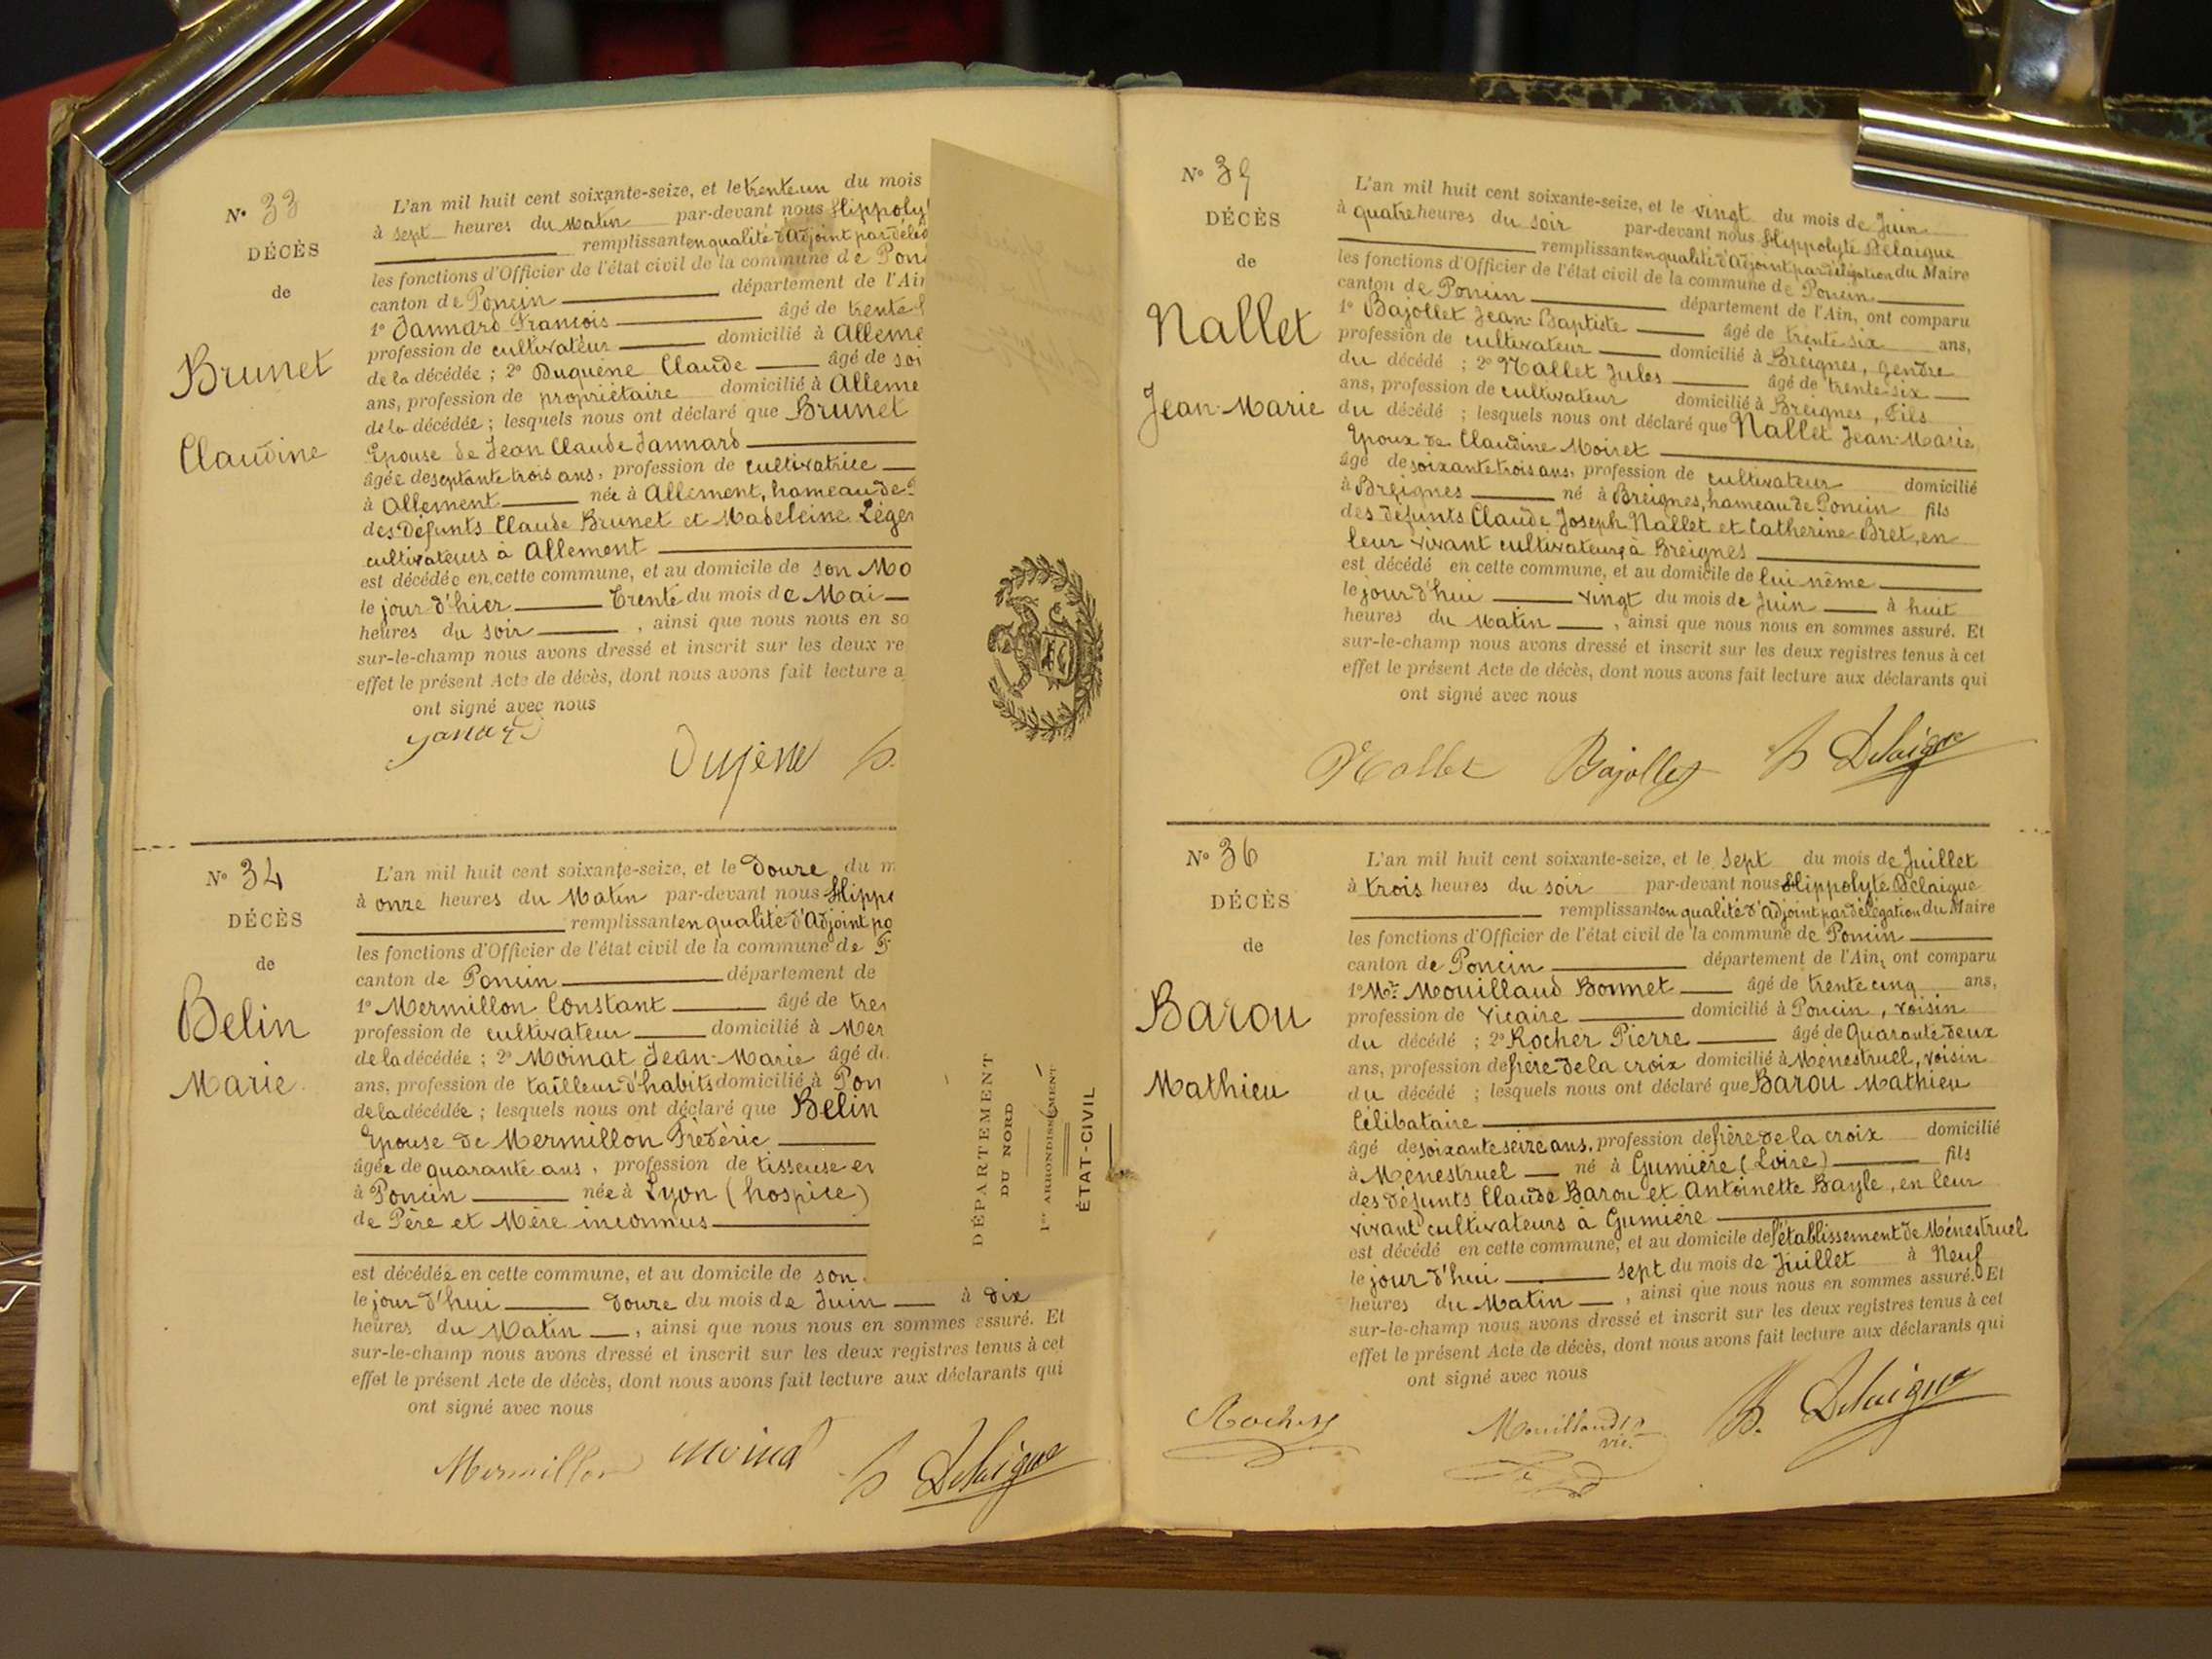 N° 33
DÉCÈS
de
Brunet
Claudine
L'an mil huit cent soixante-seize, et le trente un du mois
à sept heures du Matin par-devant nous
remplissant en qualité d'Adjoint par
les fonctions d'Officier de l'état civil de la commune de
canton de Poncin département de l'Ain
1° Jannard François âgé de trente
profession de cultivateur domicilié à
de la décédée ; 2° Duquène Claude âgé de
ans, profession de propriétaire domicilié à
de la décédée ; lesquels nous ont déclaré que Brunet
Epouse de Jean Claude Jannard
âgée de septante trois ans, profession de cultivatrice
à Allement née à Allement, hameau de
des défunts Claude Brunet et Madeleine
cultivateurs à Allement
est décédée en cette commune, et au domicile de son
le jour d'hier Trente du mois de Mai
heures du soir , ainsi que nous nous en
sur-le-champ nous avons dressé et inscrit sur les deux
effet le présent Acte de décès, dont nous avons fait lecture
ont signé avec nous
N° 34
DÉCÈS
de
Belin
Marie
L'an mil huit cent soixante-seize, et le Douze du
à onze heures du Matin par-devant nous
remplissant en qualité d'Adjoint
les fonctions d'Officier de l'état civil de la commune de
canton de Poncin département de
1° Mermillon Constant âgé de
profession de cultivateur domicilié à
de la décédée ; 2° Moinat Jean-Marie âgé
ans, profession de tailleur d'habits domicilié à
de la décédée ; lesquels nous ont déclaré que Belin
Epouse de Mermillon Frédéric
âgée de quarante ans, profession de tisseuse
à Poncin née à Lyon (hospice)
de Père et Mère inconnus
est décédée en cette commune, et au domicile de son
le jour d'hui Douze du mois de Juin à Dix
heures du Matin , ainsi que nous nous en sommes assuré. Et
sur-le-champ nous avons dressé et inscrit sur les deux registres tenus à cet
effet le présent Acte de décès, dont nous avons fait lecture aux déclarants qui
ont signé avec nous
Mermillon Moinat h Delaigue
DÉPARTEMENT
DU NORD
1er ARRONDISSEMENT
ÉTAT-CIVIL
N° 35
DÉCÈS
de
Nallet
Jean-Marie
L'an mil huit cent soixante-seize, et le vingt du mois de Juin
à quatre heures du soir par-devant nous Hippolyte Delaigue
remplissant en qualité d'Adjoint par délégation du Maire
les fonctions d'Officier de l'état civil de la commune de Poncin
canton de Poncin département de l'Ain, ont comparu
1° Bajollet Jean-Baptiste âgé de trente six ans,
profession de cultivateur domicilié à Breignes, gendre
du décédé ; 2° Nallet Jules âgé de trente-six
ans, profession de cultivateur domicilié à Breignes, Fils
du décédé ; lesquels nous ont déclaré que Nallet Jean-Marie
Epoux de Claudine Moiret
âgé de soixante trois ans, profession de cultivateur domicilié
à Breignes né à Breignes, hameau de Poncin fils
des défunts Claude Joseph Nallet et Catherine Bret, en
leur vivant cultivateurs à Breignes
est décédé en cette commune, et au domicile de lui même
le jour d'hui vingt du mois de Juin à huit
heures du Matin , ainsi que nous nous en sommes assuré. Et
sur-le-champ nous avons dressé et inscrit sur les deux registres tenus à cet
effet le présent Acte de décès, dont nous avons fait lecture aux déclarants qui
ont signé avec nous
Nallet Bajollet h Delaigue
N° 36
DÉCÈS
de
Barou
Mathieu
L'an mil huit cent soixante-seize, et le Sept du mois de Juillet
à trois heures du soir par-devant nous Hippolyte Delaigue
remplissant en qualité d'Adjoint par délégation du Maire
les fonctions d'Officier de l'état civil de la commune de Poncin
canton de Poncin département de l'Ain, ont comparu
1° Mr. Mouillaud Bonnet âgé de trente cinq ans,
profession de Vicaire domicilié à Poncin, voisin
du décédé ; 2° Rocher Pierre âgé de Quarante deux
ans, profession de frère de la croix domicilié à Ménestruel, voisin
du décédé ; lesquels nous ont déclaré que Barou Mathieu
Célibataire
âgé de soixante seize ans, profession de frère de la croix domicilié
à Ménestruel né à Gumière (Loire) fils
des défunts Claude Barou et Antoinette Bayle, en leur
vivant cultivateurs à Gumière
est décédé en cette commune, et au domicile de l'établissement de Ménestruel
le jour d'hui sept du mois de Juillet à Neuf
heures du Matin , ainsi que nous nous en sommes assuré. Et
sur-le-champ nous avons dressé et inscrit sur les deux registres tenus à cet
effet le présent Acte de décès, dont nous avons fait lecture aux déclarants qui
ont signé avec nous
Rocher Mouillaud vic. h. Delaigue